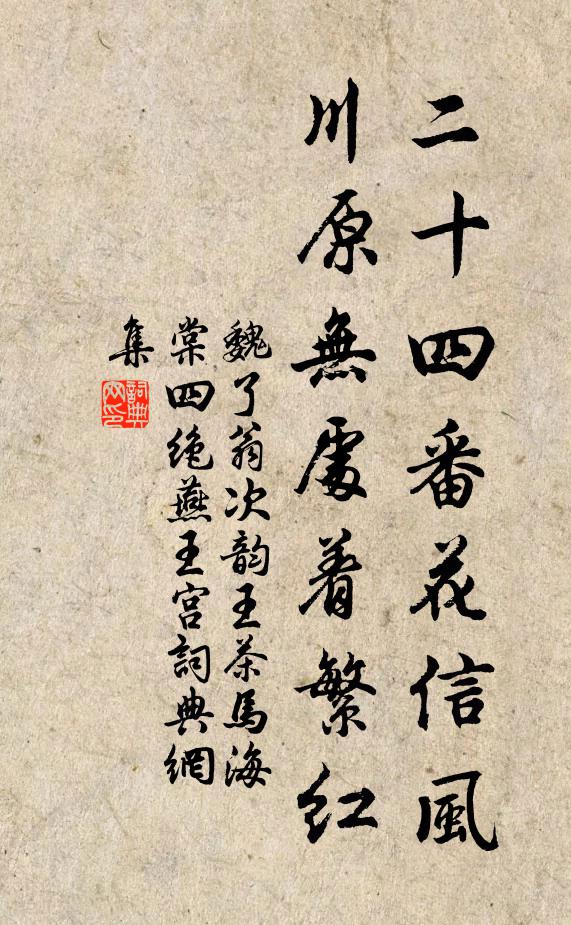 二十四番花信風
川原無處着繁紅
魏了翁次韵王茶馬海
棠四绝燕王宫詞典網
集
詞典
网印